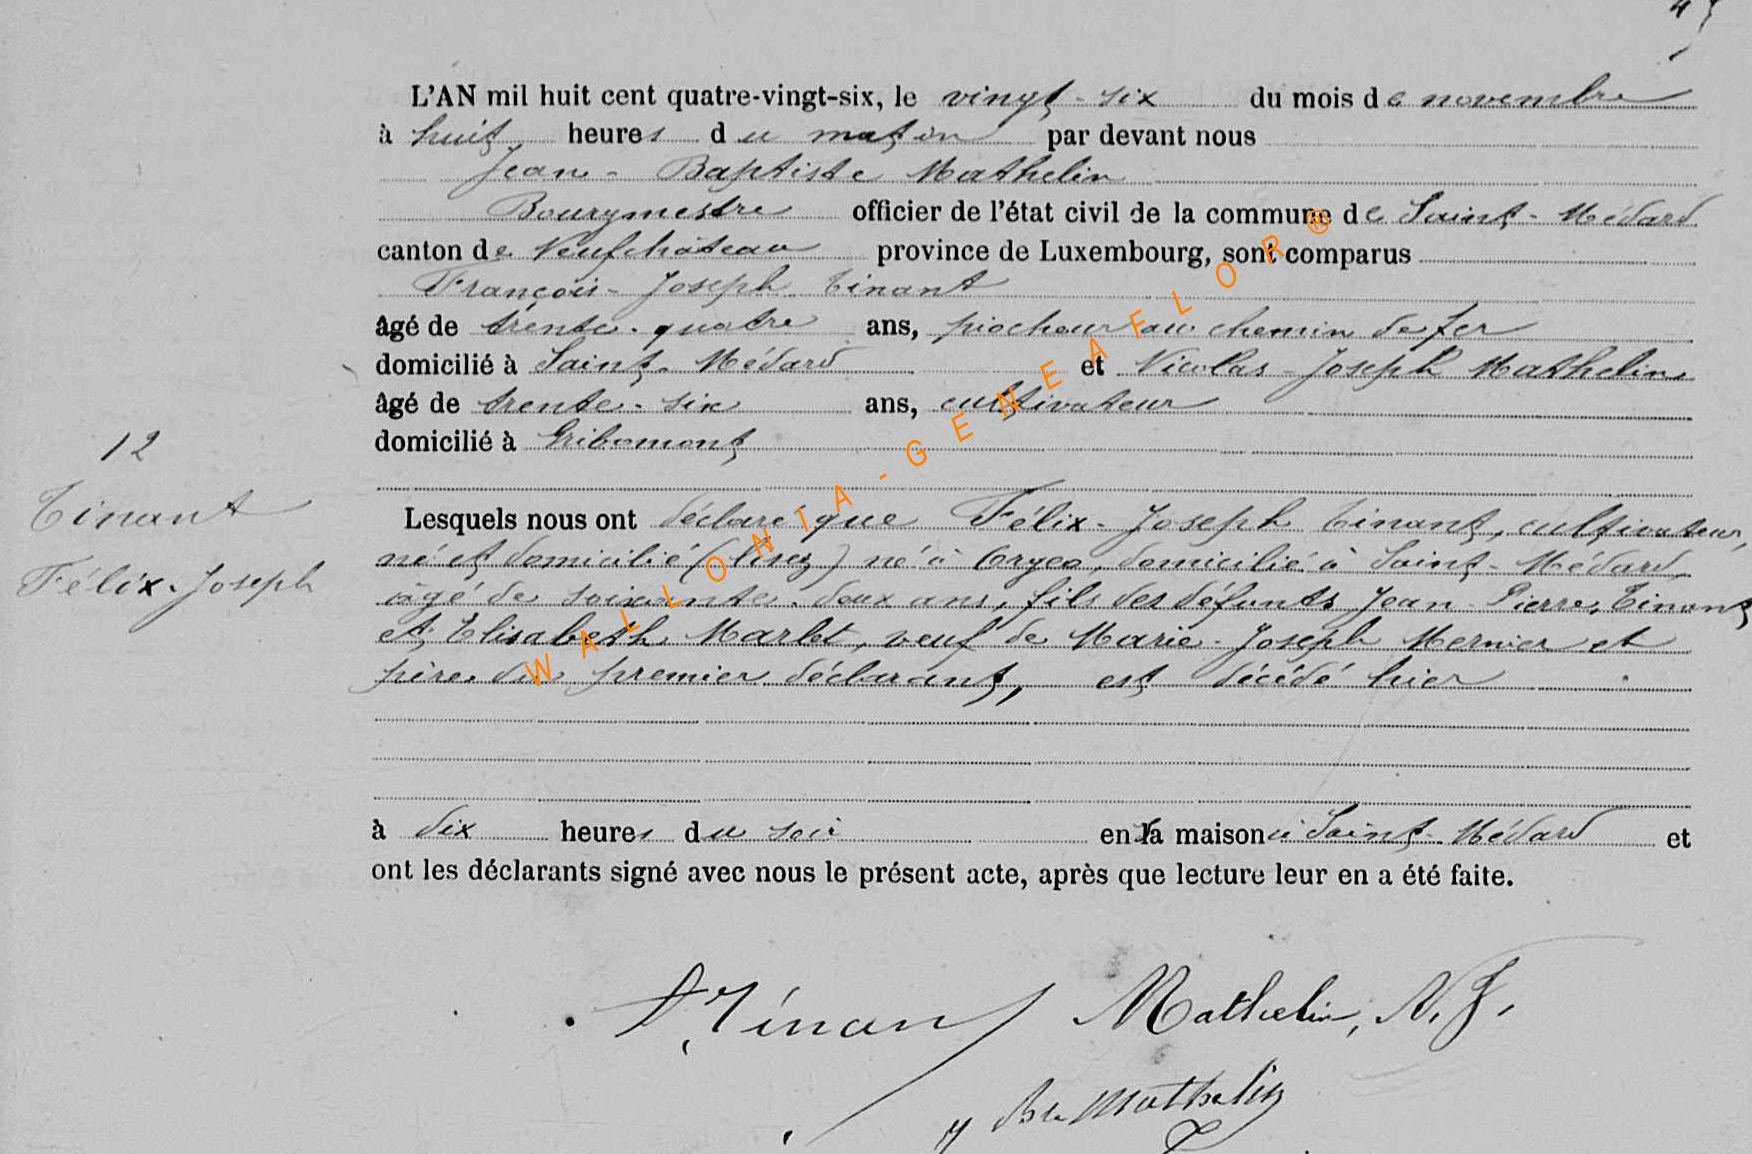 L'AN mil huit cent quatre-vingt-six, le vingt-six du mois de novembre
à huit heures du matin par devant nous
Jean-Baptiste Mathelin
Bourgmestre officier de l'état civil de la commune de Saint-Médard
canton de Neufchâteau province de Luxembourg, sont comparus
François-Joseph Tinant
âgé de trente-quatre ans, piocheur au chemin de fer
domicilié à Saint-Médard et Nicolas-Joseph Mathelin
âgé de trente-six ans, cultivateur
domicilié à Gribomont
12
Tinant
Félix-Joseph
Lesquels nous ont déclaré que Félix-Joseph Tinant, cultivateur,
né et domicilié (lisez) né à Orgeo, domicilié à Saint-Médard,
âgé de soixante-deux ans, fils des défunts Jean-Pierre Tinant
et Elisabeth Marlet, veuf de Marie-Joseph Mernier et
père du premier déclarant, est décédé hier
à dix heures du soir en sa maison à Saint-Médard et
ont les déclarants signé avec nous le présent acte, après que lecture leur en a été faite.
Tinant Mathelin, N. J.
Mathelin
WALLONIA-GENEAFLOR®